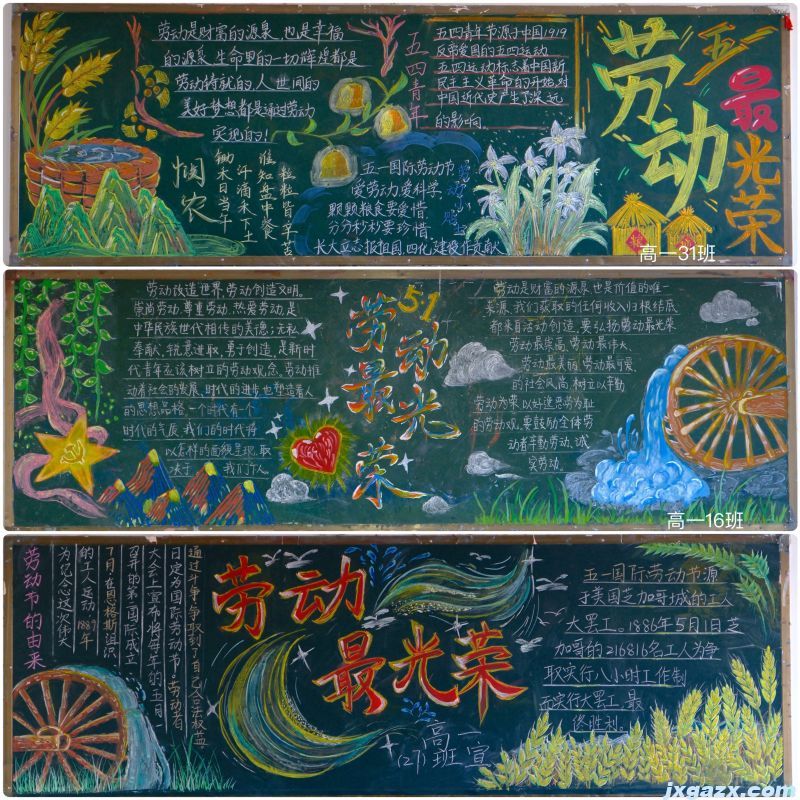 劳动是财富的源泉,也是幸福
的源泉,生命里的一切辉煌都是
劳动铸就的,人世间的
美好梦想都是通过劳动
实现的!
悯农
锄禾日当午
汗滴禾下土
谁知盘中餐
粒粒皆辛苦
五四青年
五四青年节源于中国1919
反帝爱国的五四运动
五四运动标志着中国新
民主主义革命的开始,对
中国近代史产生了深远
的影响.
五一国际劳动节
爱劳动爱科学,
颗颗粮食要爱惜,
分分秒秒要珍惜,
长大立志报祖国,四化建设作贡献
五一
劳动
最光荣
高一31班
劳动改造世界,劳动创造文明。
崇尚劳动,尊重劳动,热爱劳动,是
中华民族世代相传的美德;无私
奉献,锐意进取,勇于创造,是新时
代青年应该树立的劳动观念,劳动推
动着社会的发展,时代的进步也塑造着人
的思想品格,一个时代有一个
时代的气质,我们的时代将
以怎样的面貌呈现,取
决于 我们个人
5.1
劳动
最光荣
劳动是财富的源泉,也是价值的唯一
来源,我们获取的任何收入归根结底
都来自活动创造,要弘扬劳动最光荣
劳动最崇高,劳动最伟大,
劳动最美丽,劳动最可爱,
的社会风尚,树立以辛勤
劳动为荣,以好逸恶劳为耻
的劳动观,要鼓励全体劳
动者辛勤劳动、诚
实劳动。
高一16班
劳动节的由来
为纪念这次伟大
的工人运动1889年
7月,在恩格斯组织
召开的第二国际成立
大会上宣布将每年的五月一
日定为国际劳动节。劳动者
通过斗争争取到了自己合法权益
劳动
最光荣
高一
(27)班宣
五一国际劳动节源
于美国芝加哥城的工人
大罢工。1886年5月1日芝
加哥的216816名工人为争
取实行八小时工作制
而实行大罢工,最
终胜利.
jxgazx.com